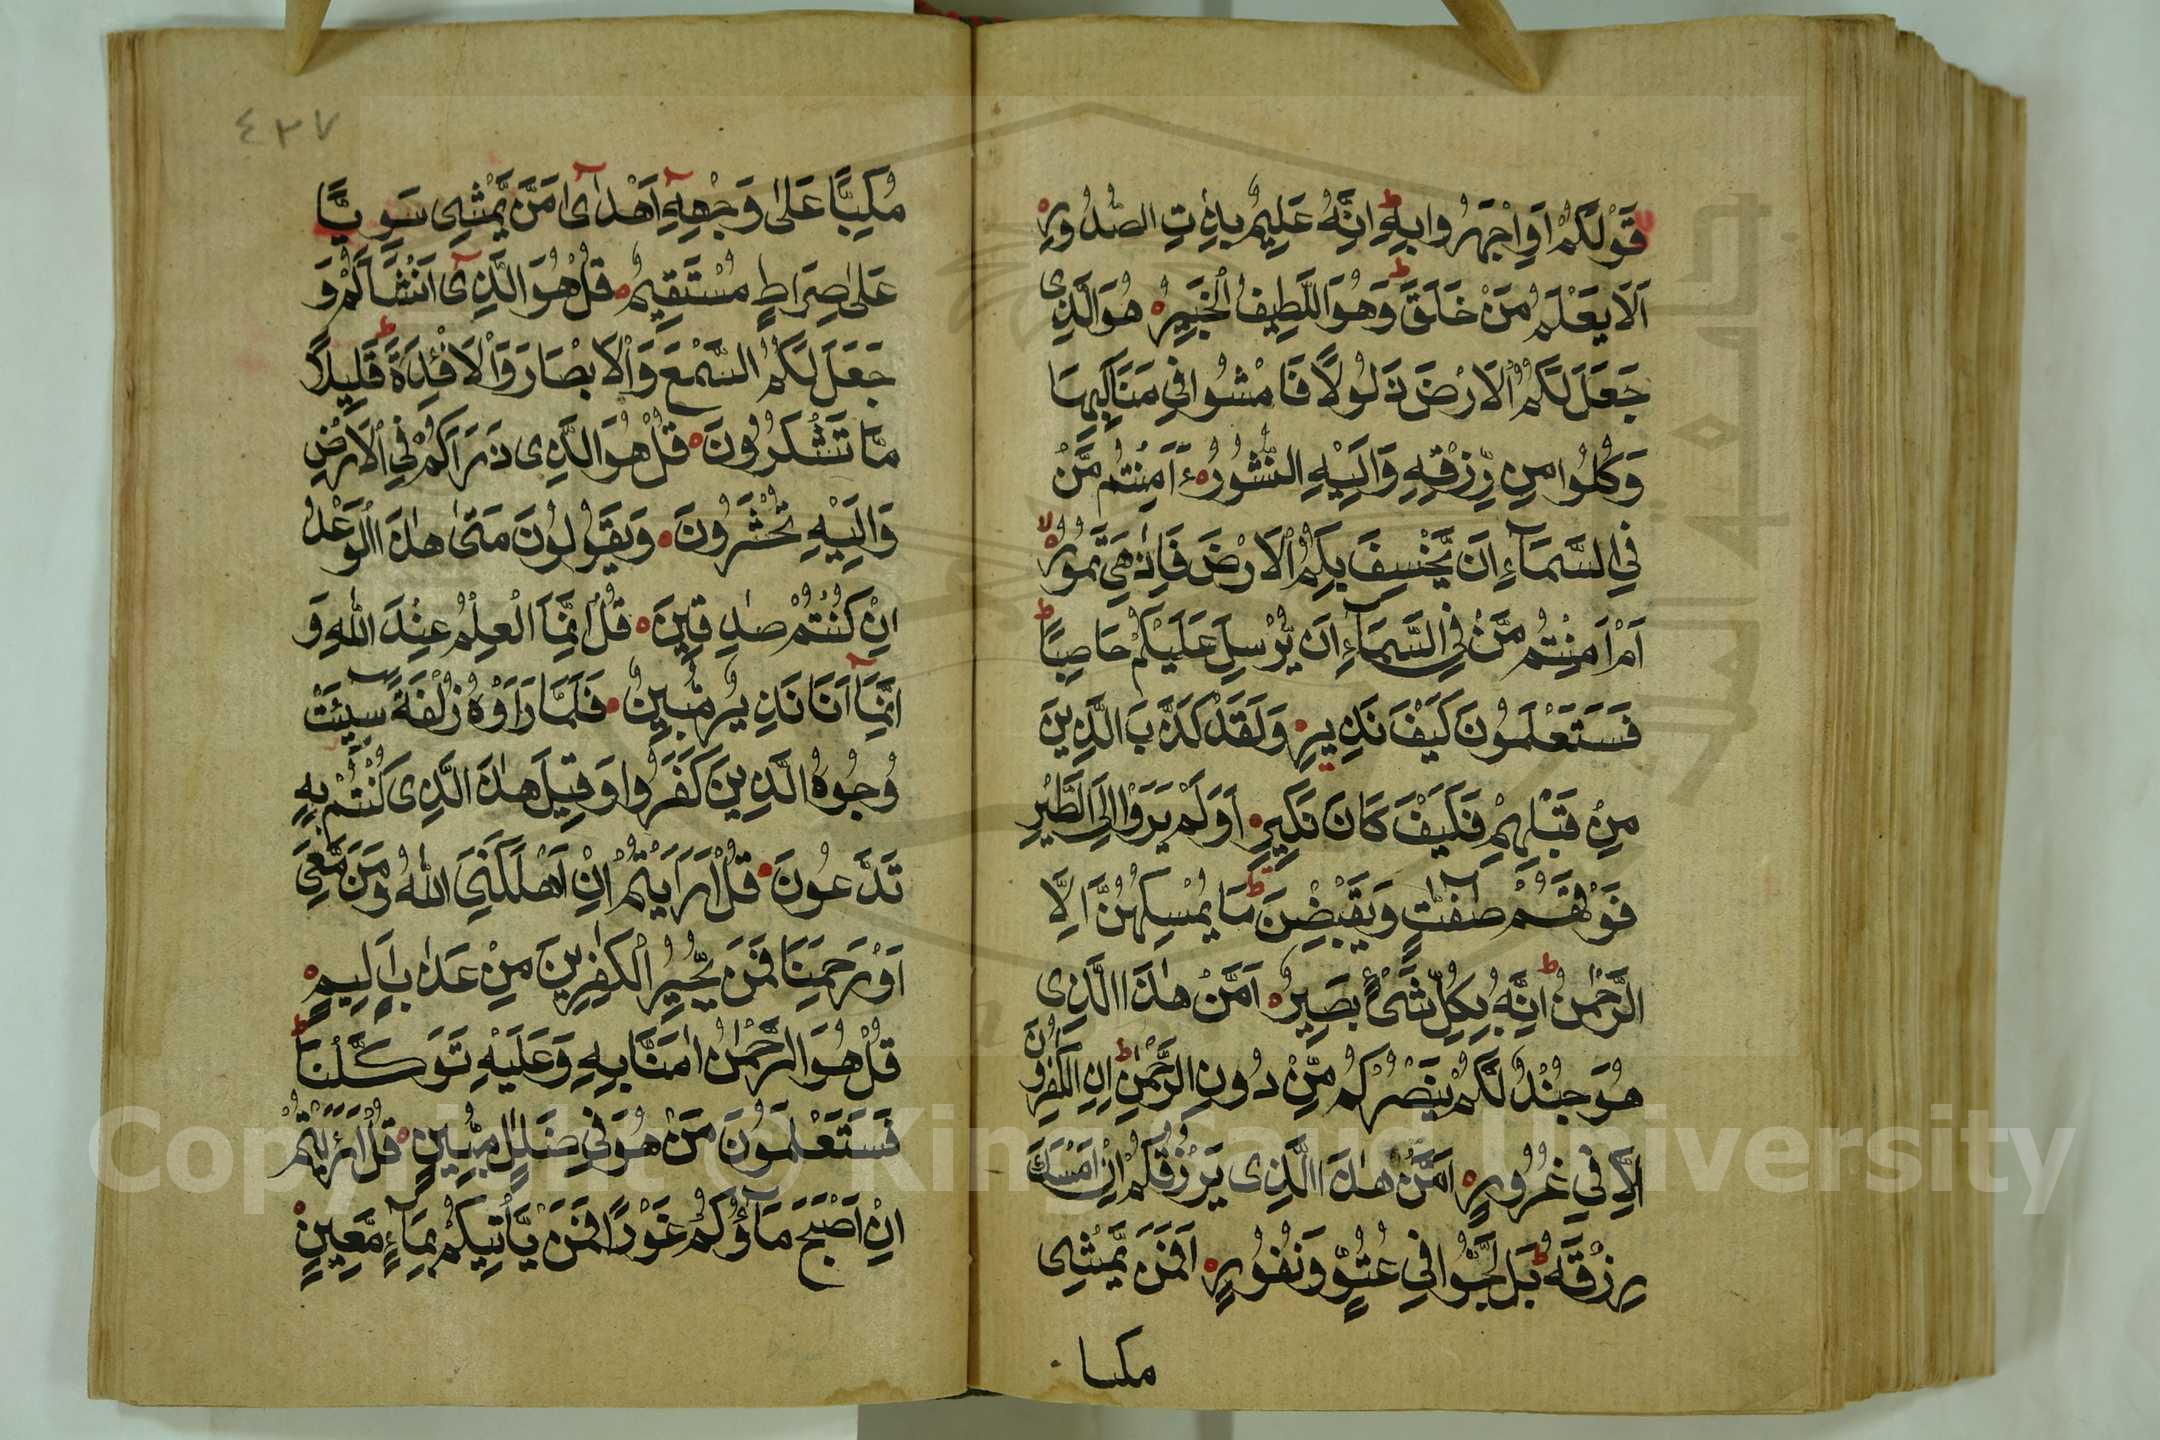 قَوْلَكُمْ اَوِ اجْهَرُوا بِهٖ اِنَّهُ عَلِيمٌ بِذَاتِ الصُّدُورِ
اَلَا يَعْلَمُ مَنْ خَلَقَ وَهُوَ اللَّطِيفُ الْخَبِيرُ هُوَ الَّذِى
جَعَلَ لَكُمُ الْاَرْضَ ذَلُولًا فَامْشُوا فِي مَنَاكِبِهَا
وَكُلُوا مِنْ رِّزْقِهٖ وَاِلَيْهِ النُّشُورُ ءَاَمِنْتُمْ مَّنْ
فِي السَّمَآءِ اَنْ يَّخْسِفَ بِكُمُ الْاَرْضَ فَاِذَا هِيَ تَمُورُ
اَمْ اَمِنْتُمْ مَّنْ فِي السَّمَآءِ اَنْ يُّرْسِلَ عَلَيْكُمْ حَاصِبًا
فَسَتَعْلَمُونَ كَيْفَ نَذِيرِ وَلَقَدْ كَذَّبَ الَّذِينَ
مِنْ قَبْلِهِمْ فَكَيْفَ كَانَ نَكِيرِ اَوَلَمْ يَرَوْا اِلَى الطَّيْرِ
فَوْقَهُمْ صٰفّٰتٍ وَيَقْبِضْنَ مَا يُمْسِكُهُنَّ اِلَّا
الرَّحْمٰنُ اِنَّهُ بِكُلِّ شَىْءٍ بَصِيرٌ اَمَّنْ هٰذَا الَّذِى
هُوَ جُنْدٌ لَّكُمْ يَنْصُرُكُمْ مِّنْ دُونِ الرَّحْمٰنِ اِنِ الْكٰفِرُونَ
اِلَّا فِي غُرُورٍ اَمَّنْ هٰذَا الَّذِى يَرْزُقُكُمْ اِنْ اَمْسَكَ
رِزْقَهُ بَلْ لَّجُّوا فِي عُتُوٍّ وَنُفُورٍ اَفَمَنْ يَّمْشِى
مكبا
٤٢٧
مُكِبًّا عَلٰى وَجْهِهٖٓ اَهْدٰىٓ اَمَّنْ يَّمْشِى سَوِيًّا
عَلٰى صِرَاطٍ مُسْتَقِيمٍ قُلْ هُوَ الَّذِىٓ اَنْشَاَكُمْ وَ
جَعَلَ لَكُمُ السَّمْعَ وَالْاَبْصَارَ وَالْاَفْئِدَةَ قَلِيلًا
مَّا تَشْكُرُونَ قُلْ هُوَ الَّذِى ذَرَاَكُمْ فِي الْاَرْضِ
وَاِلَيْهِ تُحْشَرُونَ وَيَقُولُونَ مَتٰى هٰذَا الْوَعْدُ
اِنْ كُنْتُمْ صٰدِقِينَ قُلْ اِنَّمَا الْعِلْمُ عِنْدَ اللّٰهِ وَ
اِنَّمَآ اَنَا نَذِيرٌ مُّبِينٌ فَلَمَّا رَاَوْهُ زُلْفَةً سِيٓئَتْ
وُجُوهُ الَّذِينَ كَفَرُوا وَقِيلَ هٰذَا الَّذِى كُنْتُمْ بِهٖ
تَدَّعُونَ قُلْ اَرَاَيْتُمْ اِنْ اَهْلَكَنِيَ اللّٰهُ وَمَنْ مَّعِيَ
اَوْ رَحِمَنَا فَمَنْ يُّجِيرُ الْكٰفِرِينَ مِنْ عَذَابٍ اَلِيمٍ
قُلْ هُوَ الرَّحْمٰنُ اٰمَنَّا بِهٖ وَعَلَيْهِ تَوَكَّلْنَا
فَسَتَعْلَمُونَ مَنْ هُوَ فِي ضَلٰلٍ مُّبِينٍ قُلْ اَرَءَيْتُمْ
اِنْ اَصْبَحَ مَآؤُكُمْ غَوْرًا فَمَنْ يَّاْتِيكُمْ بِمَآءٍ مَّعِينٍ
Copyright © King Saud University